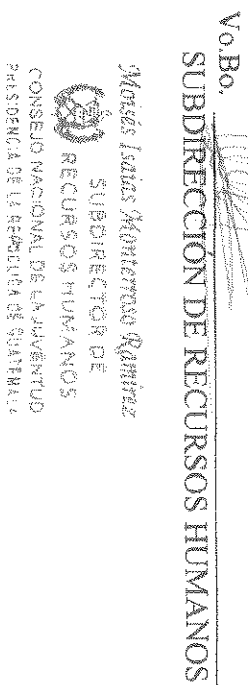 Vo.Bo.
SUBDIRECCIÓN DE RECURSOS HUMANOS
Moisés Isaías Monterroso Ramírez
SUBDIRECTOR DE
RECURSOS HUMANOS
CONSEJO NACIONAL DE LA JUVENTUD
PRESIDENCIA DE LA REPÚBLICA DE GUATEMALA